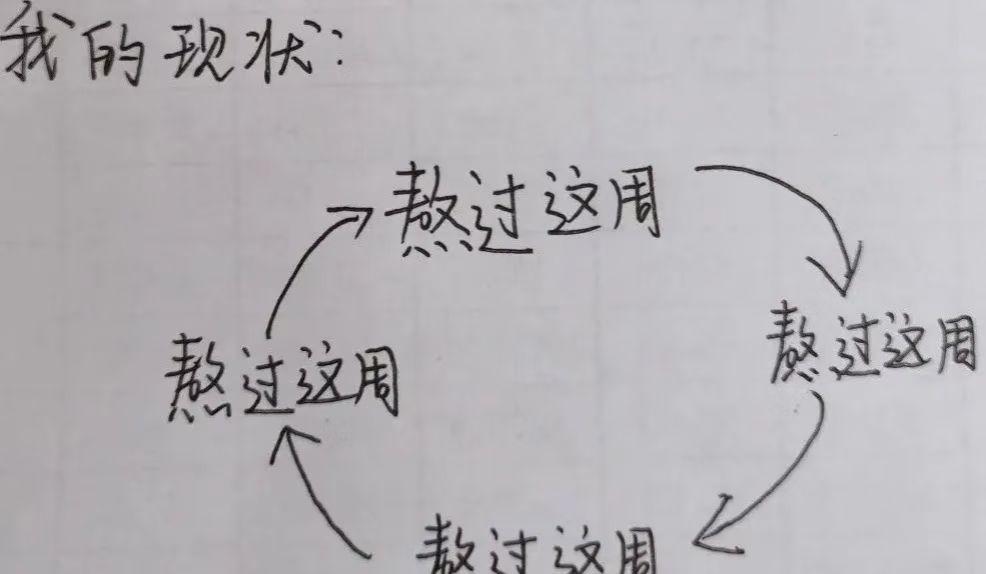 我的现状:
熬过这周
熬过这周
熬过这周
熬过这周